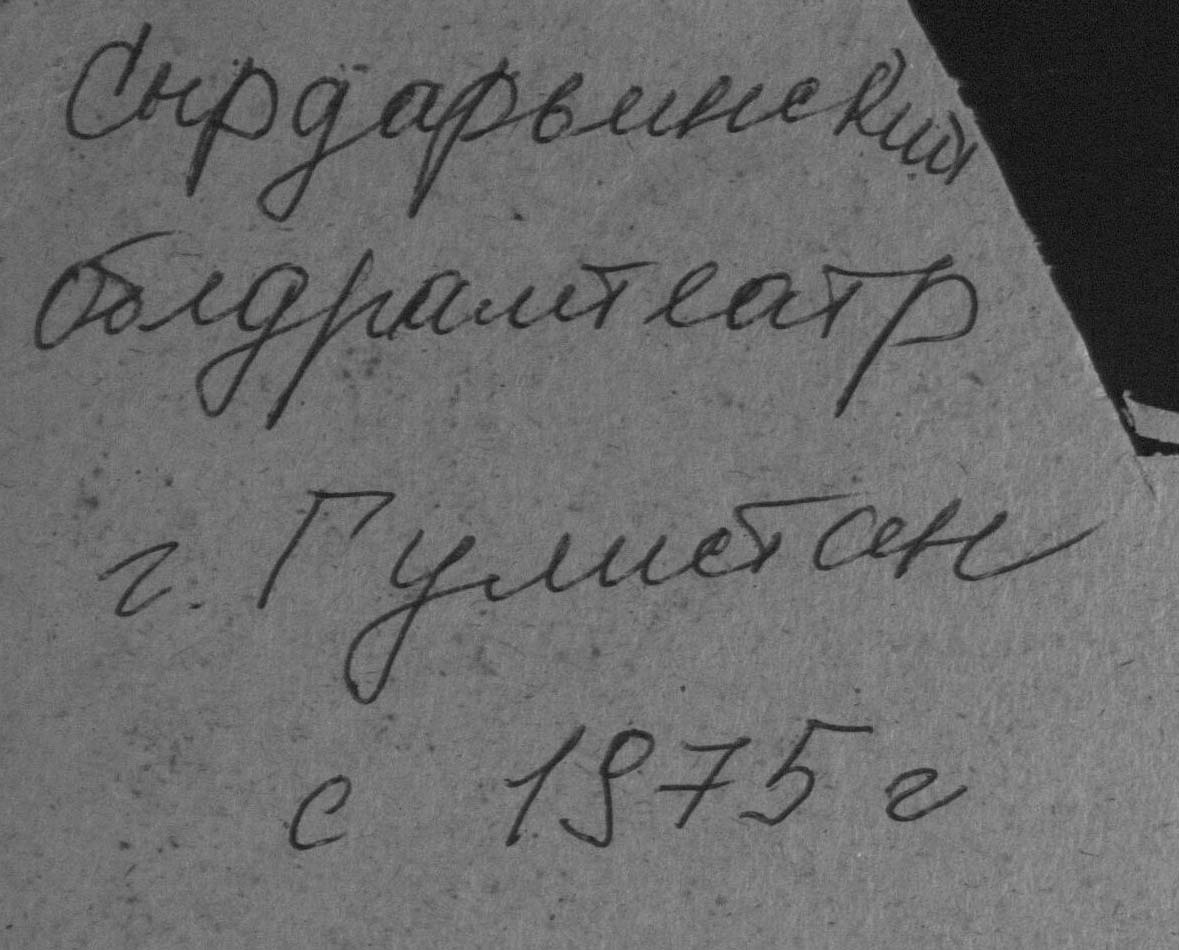 Сырдарьинский
облдрамтеатр
г. Гулистан
с 1975 г